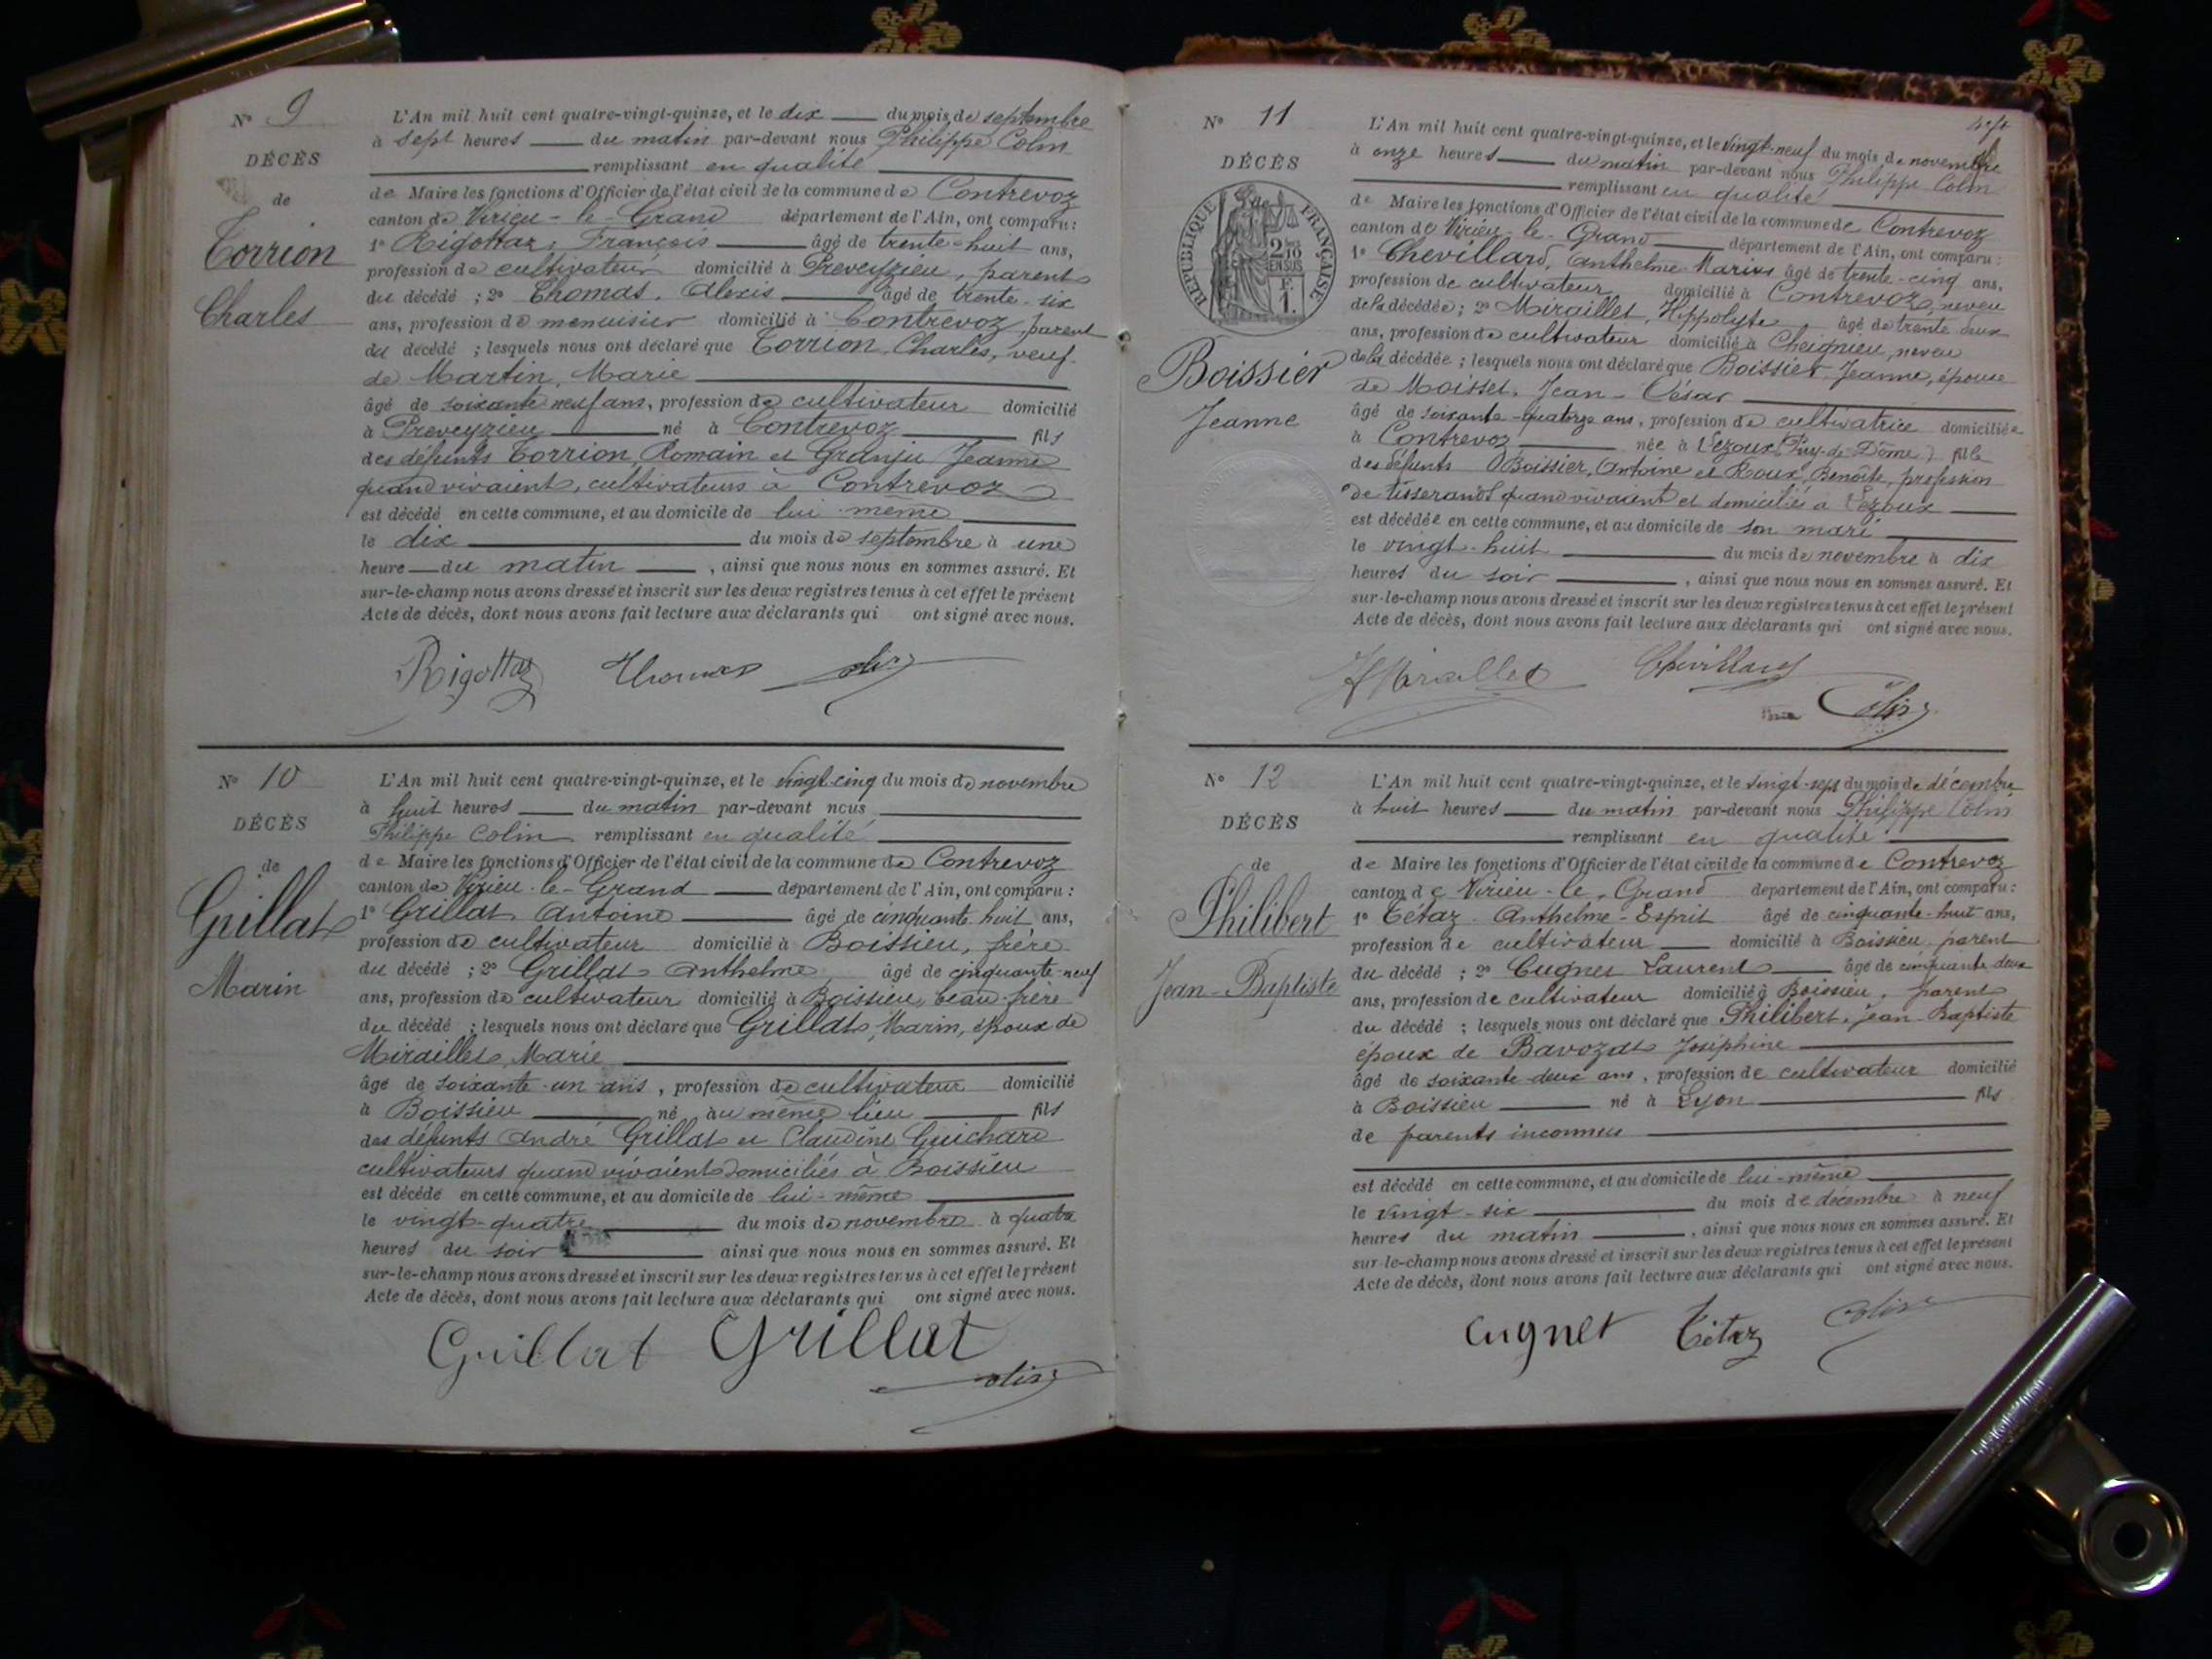 N° 9
DÉCÈS
de
Torrion
Charles
L'An mil huit cent quatre-vingt-quinze, et le dix du mois de septembre
à sept heures du matin par-devant nous Philippe Colin
remplissant en qualité
de Maire les fonctions d'Officier de l'état civil de la commune de Contrevoz
canton de Virieu-le-Grand département de l'Ain, ont comparu :
1° Rigottaz, François âgé de trente-huit ans,
profession de cultivateur domicilié à Preveyzieu, parent
du décédé ; 2° Thomas, Alexis âgé de trente-six
ans, profession de menuisier domicilié à Contrevoz, parent
du décédé ; lesquels nous ont déclaré que Torrion, Charles, veuf
de Martin, Marie
âgé de soixante neuf ans, profession de cultivateur domicilié
à Preveyzieu né à Contrevoz fils
des défunts Torrion, Romain et Granju Jeanne
quand vivaient, cultivateurs à Contrevoz
est décédé en cette commune, et au domicile de lui-même
le dix du mois de septembre à une
heure du matin, ainsi que nous nous en sommes assuré. Et
sur-le-champ nous avons dressé et inscrit sur les deux registres tenus à cet effet le présent
Acte de décès, dont nous avons fait lecture aux déclarants qui ont signé avec nous.
Rigottaz Thomas Colin
N° 10
DÉCÈS
de
Grillat
Marin
L'An mil huit cent quatre-vingt-quinze, et le vingt-cinq du mois de novembre
à huit heures du matin par-devant nous
Philippe Colin remplissant en qualité
de Maire les fonctions d'Officier de l'état civil de la commune de Contrevoz
canton de Virieu-le-Grand département de l'Ain, ont comparu :
1° Grillat Antoine âgé de cinquante-huit ans,
profession de cultivateur domicilié à Boissieu, frère
du décédé ; 2° Grillat Anthelme, âgé de cinquante-neuf
ans, profession de cultivateur domicilié à Boissieu, beau-frère
du décédé ; lesquels nous ont déclaré que Grillat, Marin, époux de
Miraillet, Marie
âgé de soixante-un ans, profession de cultivateur domicilié
à Boissieu né au même lieu fils
des défunts André Grillat et Claudine Guichard
cultivateurs quand vivaient domiciliés à Boissieu
est décédé en cette commune, et au domicile de lui-même
le vingt-quatre du mois de novembre à quatre
heures du soir ainsi que nous nous en sommes assuré. Et
sur-le-champ nous avons dressé et inscrit sur les deux registres tenus à cet effet le présent
Acte de décès, dont nous avons fait lecture aux déclarants qui ont signé avec nous.
Grillat Grillat
Colin
N° 11
DÉCÈS
de
RÉPUBLIQUE FRANÇAISE
2/10 EN SUS
F.
1.
Boissier
Jeanne
L'An mil huit cent quatre-vingt-quinze, et le vingt-neuf du mois de novembre
à onze heures du matin par-devant nous Philippe Colin
remplissant en qualité
de Maire les fonctions d'Officier de l'état civil de la commune de Contrevoz
canton de Virieu-le-Grand département de l'Ain, ont comparu :
1° Chevillard, Anthelme Marius âgé de trente-cinq ans,
profession de cultivateur domicilié à Contrevoz, neveu
de la décédée ; 2° Miraillet, Hippolyte, âgé de trente-deux
ans, profession de cultivateur domicilié à Cheignieu, neveu
de la décédée ; lesquels nous ont déclaré que Boissier, Jeanne, épouse
de Moisset, Jean-César
âgé de soixante-quatorze ans, profession de cultivatrice domiciliée
à Contrevoz née à Lezoux (Puy-de-Dôme) fille
des défunts Boissier, Antoine et Roux, Benoîte, profession
de tisserands quand vivaient et domiciliés à Lezoux
est décédée en cette commune, et au domicile de son mari
le vingt-huit du mois de novembre à dix
heures du soir, ainsi que nous nous en sommes assuré. Et
sur-le-champ nous avons dressé et inscrit sur les deux registres tenus à cet effet le présent
Acte de décès, dont nous avons fait lecture aux déclarants qui ont signé avec nous.
H Miraillet Chevillard
Colin
N° 12
DÉCÈS
de
Philibert
Jean-Baptiste
L'An mil huit cent quatre-vingt-quinze, et le vingt-sept du mois de décembre
à huit heures du matin par-devant nous Philippe Colin
remplissant en qualité
de Maire les fonctions d'Officier de l'état civil de la commune de Contrevoz
canton de Virieu-le-Grand département de l'Ain, ont comparu :
1° Tétaz Anthelme-Esprit âgé de cinquante-huit ans,
profession de cultivateur domicilié à Boissieu parent
du décédé ; 2° Cugnet Laurent âgé de cinquante-deux
ans, profession de cultivateur domicilié à Boissieu, parent
du décédé ; lesquels nous ont déclaré que Philibert, jean-Baptiste
époux de Bavozat Joséphine
âgé de soixante-deux ans, profession de cultivateur domicilié
à Boissieu né à Lyon fils
de parents inconnus
est décédé en cette commune, et au domicile de lui-même
le vingt-six du mois de décembre à neuf
heures du matin, ainsi que nous nous en sommes assuré. Et
sur-le-champ nous avons dressé et inscrit sur les deux registres tenus à cet effet le présent
Acte de décès, dont nous avons fait lecture aux déclarants qui ont signé avec nous.
Cugnet Tétaz Colin